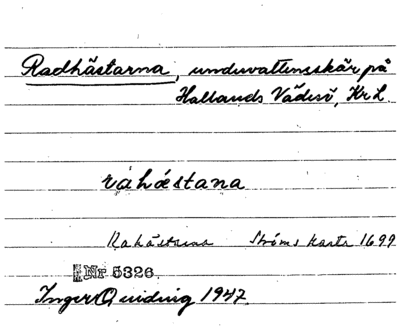 Radhästarna, undervattensskär på
Hallands Väderö, Kr L.
ràhǽstana
Rahästarna Ströms karta 1699
Nr 5326
Inger Quiding 1947.